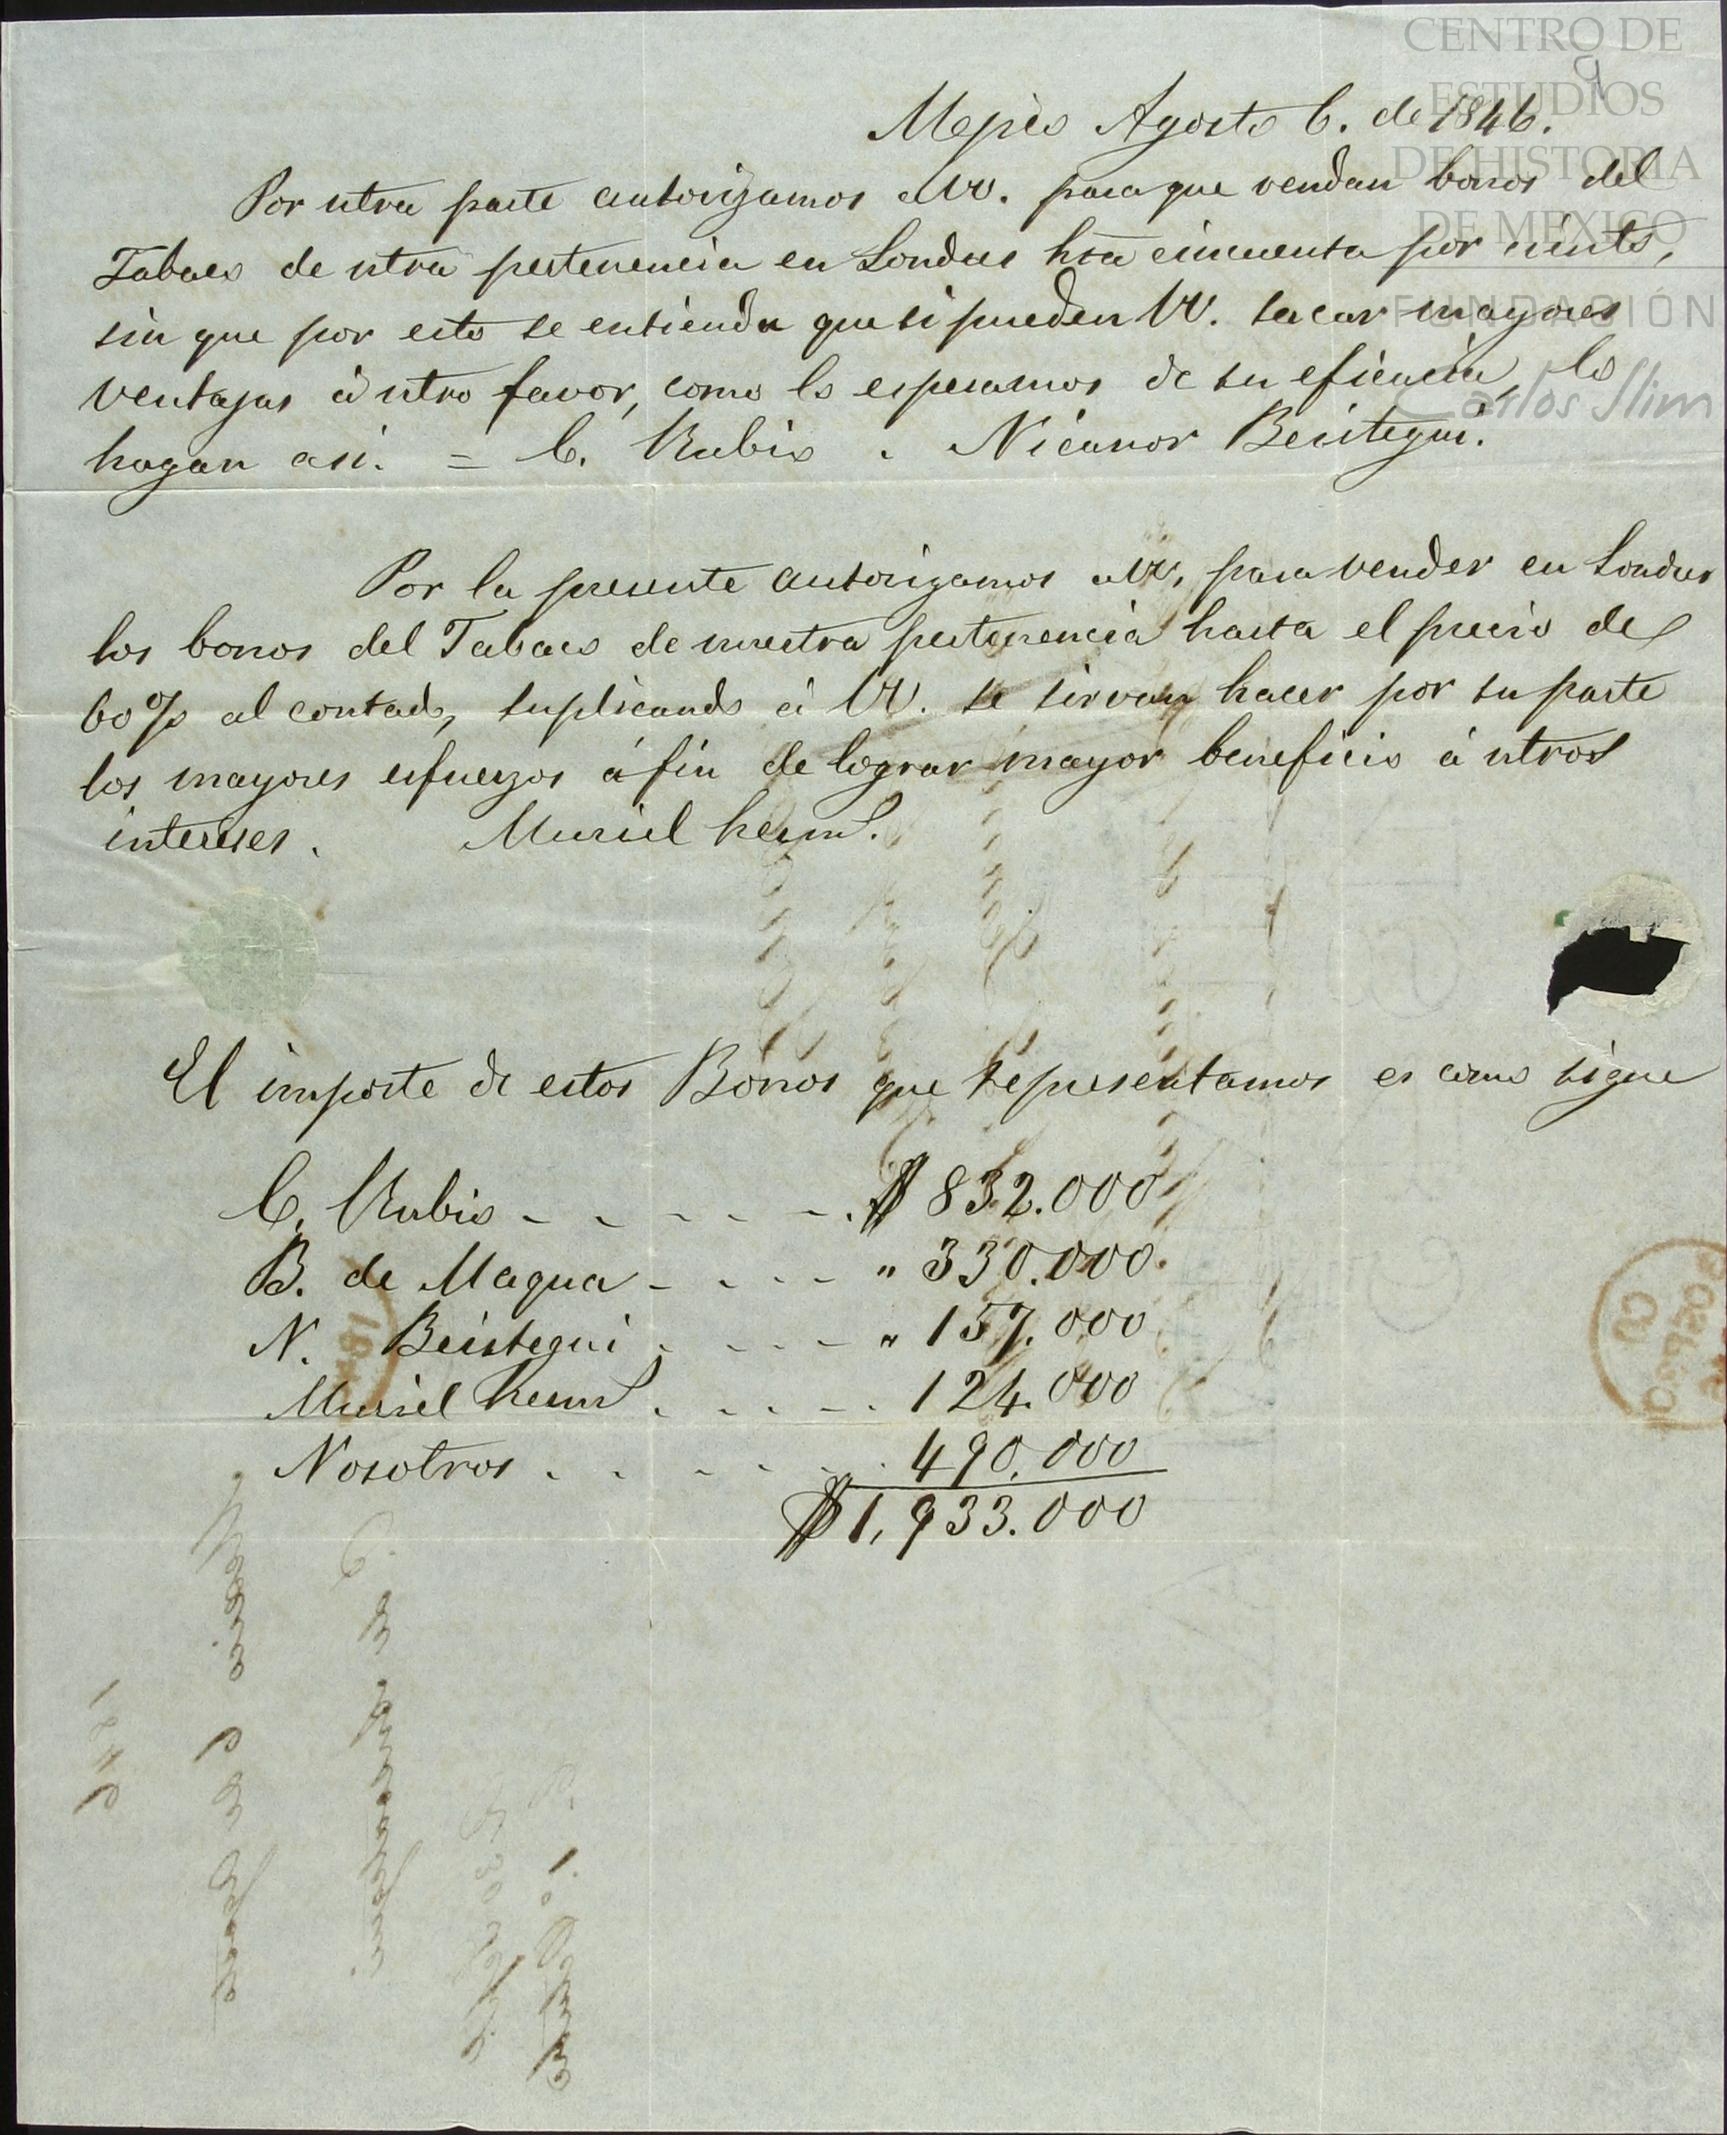 CENTRO DE
ESTUDIOS
DE HISTORIA
DE MÉXICO
FUNDACIÓN
Carlos Slim
9
Mejico Agosto 6. de 1846.
Por ntra parte autorizamos a VV. para que vendan bonos del
Tabaco de ntra pertenencia en Londres hta cincuenta por ciento,
sin que por esto se entienda que si pueden VV. sacar mayores
ventajas á ntro favor, como lo esperamos de su eficiencia, lo
hagan asi. = C. Rubio . Nicanor Beistegui.
Por la presente autorizamos a VV. para vender en Londres
los bonos del Tabaco de nuestra pertenencia hasta el precio de
60% al contado, suplicando á VV. se sirvan hacer por su parte
los mayores esfuerzos á fin de lograr mayor beneficio á ntros
intereses. Muriel herms.
El importe de estos Bonos que representamos es como sigue
C. Rubio - - - - - - $ 832.000
B. de Magua - - - - " 330.000.
N. Beistegui - - - - " 157.000
Muriel herms. - - - - 124.000
Nosotros . . - - - . 490.000
$ 1,933.000